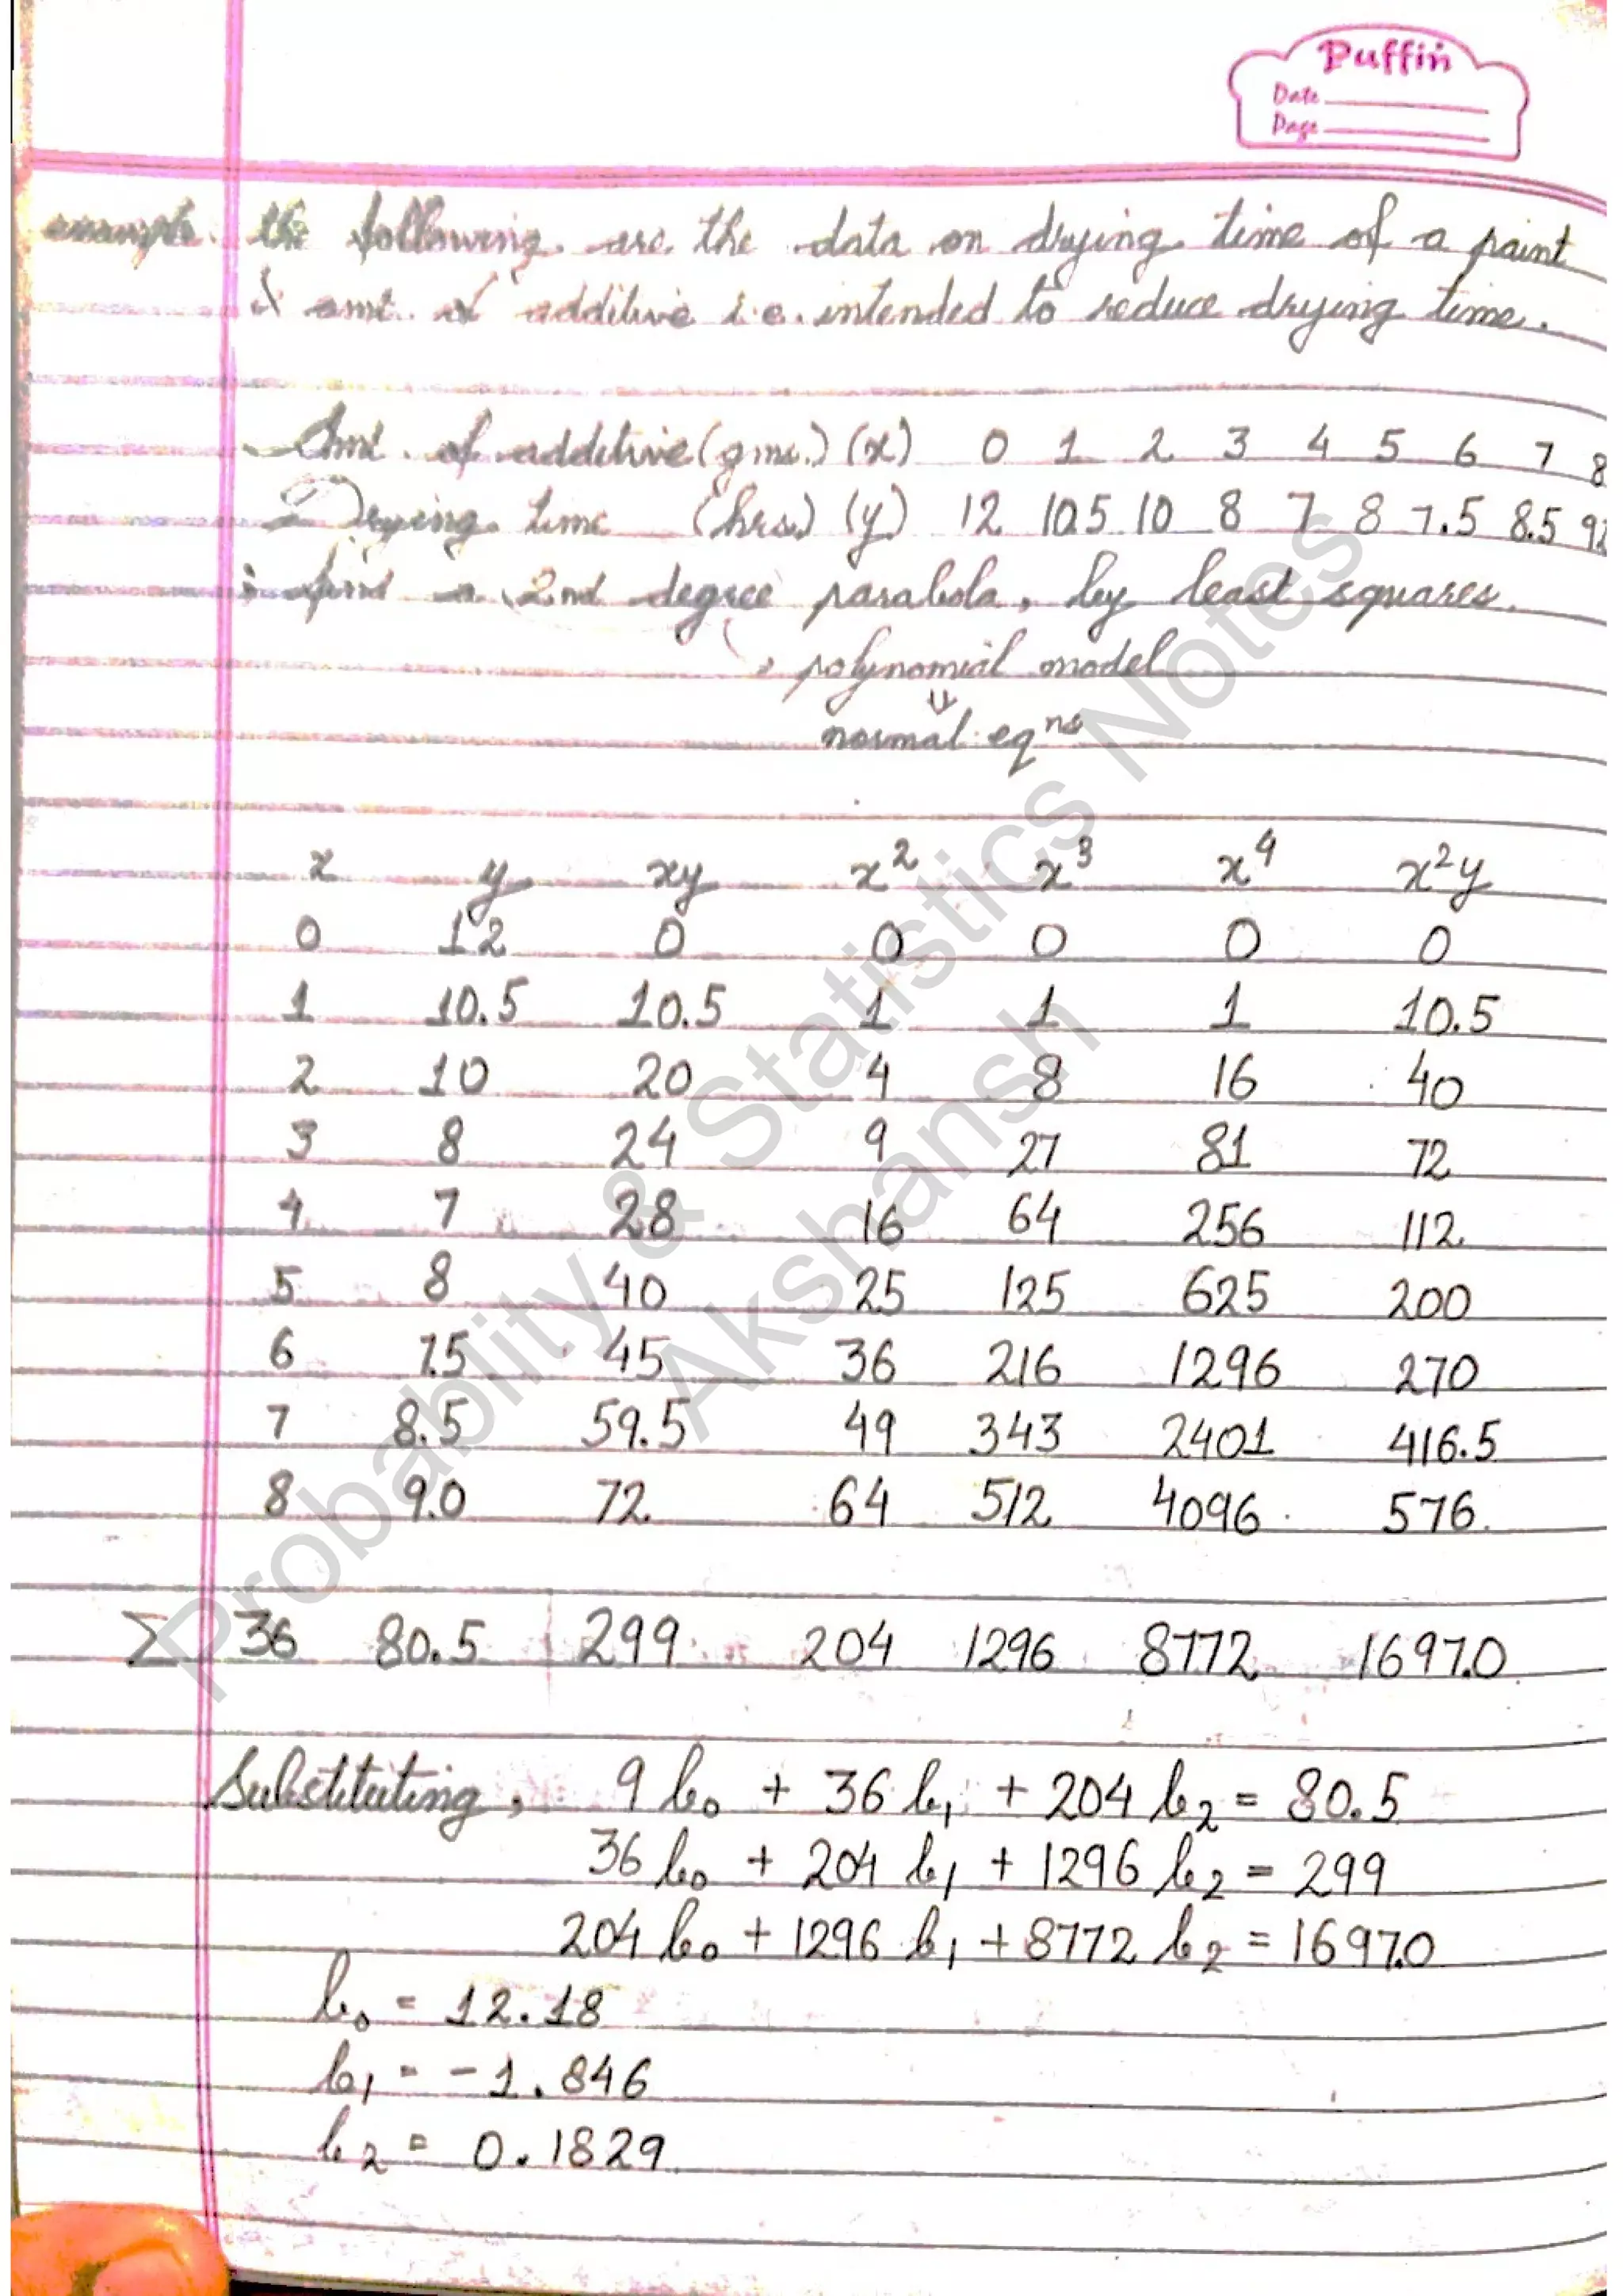 Puffin
Date
Page
example. the following are the data on drying time of a paint
& amt. of additive i.e. intended to reduce drying time.
Amt. of additive (gms.) (x) 0 1 2 3 4 5 6 7 8
Drying time (hrs.) (y) 12 10.5 10 8 7 8 7.5 8.5 9
: find a 2nd degree parabola, by least squares.
polynomial model
⇓
normal eqns
x y xy x² x³ x⁴ x²y
0 12 0 0 0 0 0
1 10.5 10.5 1 1 1 10.5
2 10 20 4 8 16 40
3 8 24 9 27 81 72
4 7 28 16 64 256 112
5 8 40 25 125 625 200
6 7.5 45 36 216 1296 270
7 8.5 59.5 49 343 2401 416.5
8 9.0 72 64 512 4096 576
Σ 36 80.5 299 204 1296 8772 1697.0
Substituting, 9b₀ + 36b₁ + 204b₂ = 80.5
36b₀ + 204b₁ + 1296b₂ = 299
204b₀ + 1296b₁ + 8772b₂ = 1697.0
b₀ = 12.18
b₁ = -1.846
b₂ = 0.1829
Probablity & Statistics Notes
Akshansh